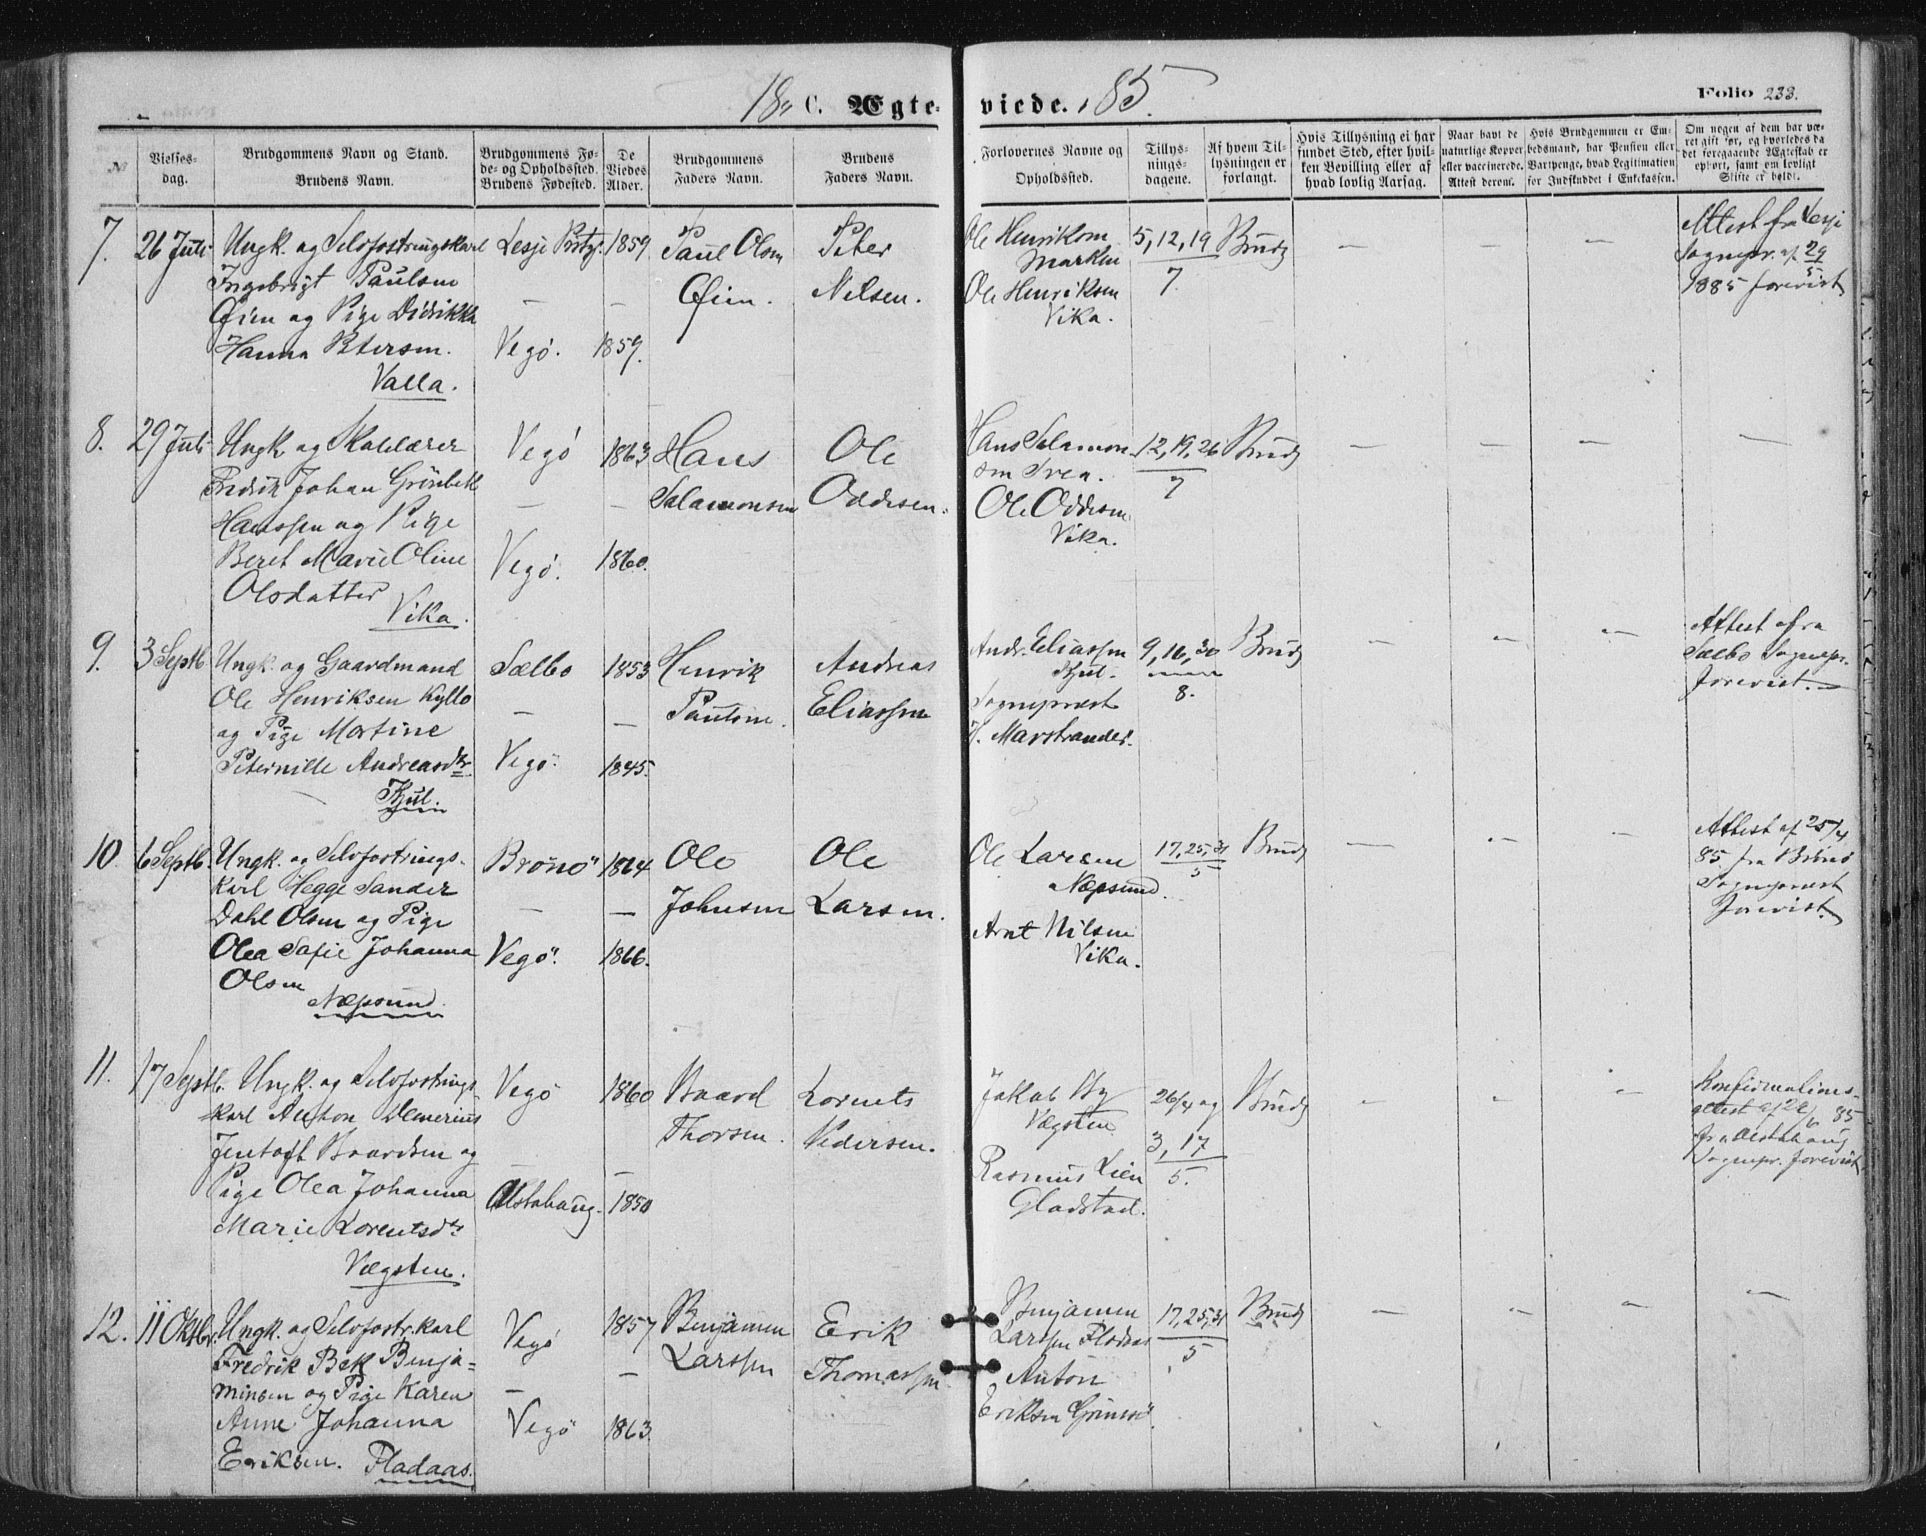 18 C. Ægteviede. 85.
Folio 233.
№
Vielses-dag.
Brudgommens Navn og Stand.
Brudens Navn.
Brudgommens Fø-
de- og Opholdssted.
Brudens Fødested.
De
Viedes
Alder.
Brudgommens
Faders Navn.
Brudens
Faders Navn.
Forlovernes Navne og
Opholdssted.
Tillys-
nings-
dagene.
Af hvem Til-
lysningen er
forlangt.
Hvis Tillysning ei har
fundet Sted, efter hvil-
ken Bevilling eller af
hvad lovlig Aarsag.
Naar havt de
naturlige Kopper
eller vaccinerede.
Attest derom.
Hvis Brudgommen er Em-
bedsmand, har Pension eller
Vartpenge, hvad Legitimation
for Indskuddet i Enkekassen.
Om nogen af dem har væ-
ret gift før, og hvorledes da
det foregaaende Ægteskab er
ophørt, samt om lovligt
Skifte er holdt.
7. 26 Juli
Ungk. og Selvfostringskarl
Ingebrigt Paulsen
Øien og Pige Didrikka
Hanna Petersen.
Valla.
Lesje
—
Vegö.
1859
—
1859.
Paul Olsen
Øien.
Peter
Nilsen.
Ole Henriksen
Marken
Ole Henriksen
Vika.
5, 12, 19
7.
Brudg
— — —
Attest fra Lesje
Sognepr. af 29/5
1885 forevist
8. 29 Juli
Ungk og Skolelærer
Fredrik Johan Grönbek
Hanssen og Pige
Beret Marie Oline
Olsdatter
Vika.
Vegö
—
Vegö.
1863
—
1860.
Hans
Salamonsen
Ole
Oddesen.
Hans Salamon-
sen
Ole Oddesen
Vika.
12, 19, 26
7
Brudg
— — — —
9. 3 Septb.
Ungk. og Gaardmand
Ole Henriksen Kyllo
og Pige Martine
Peternille Andreasdtr.
Kjul.
Sælbo
—
Vegö.
1853
—
1845.
Henrik
Paulsen.
Andreas
Eliassen
Andr. Eliassen
Kjul.
Sognepræst
H. Marstrander.
9, 16, 30
8.
Brudg
— — —
Attest fra
Sælbo Sognepr.
forevist.
10. 6 Septb.
Ungk. og Selvfostrings-
karl Hegge Sander
Dahl Olsen og Pige
Olea Sofie Johanna
Olsen
Næpsund.
Brönö
—
Vegö.
1864
—
1866.
Ole
Johnsen
Ole
Larsen.
Ole Larsen
Næpsund.
Arnt Nilsen
Vika.
17, 25, 31
5
Brudg
— — —
Attest af 25/4
85 fra Brönö
Sognepræst
forevist.
11. 17 Septb.
Ungk. og Selvfostrings-
karl Anton Demerius
Jentoft Baardsen og
Pige Olea Johanna
Marie Lorentsdtr
Vægsten.
Vegö
—
Alstahaug.
1860
—
1850
Baard
Thorsen.
Lornts
Pedersen.
Jakob By
Vægsten
Rasmus Lien
Gladstad.
26/4 og
3, 17
5.
Brudg
— — —
Konfirmations-
attest af 85
fra Alstahaug
Sognepr. forevist
12. 11 Oktbr.
Ungk. og Selvfostr.karl
Fredrik Bek Benja-
minsen og Pige Karen
Anne Johanna
Eriksen. Fladaas.
Vegö
—
Vegö
1857
—
1863.
Benjamen
Larssen
Erik
Thomassen
Benjamen
Larssen Fladaas
Anton
Eriksen Grimsö
17, 25, 31
5
Brudg
— — — —